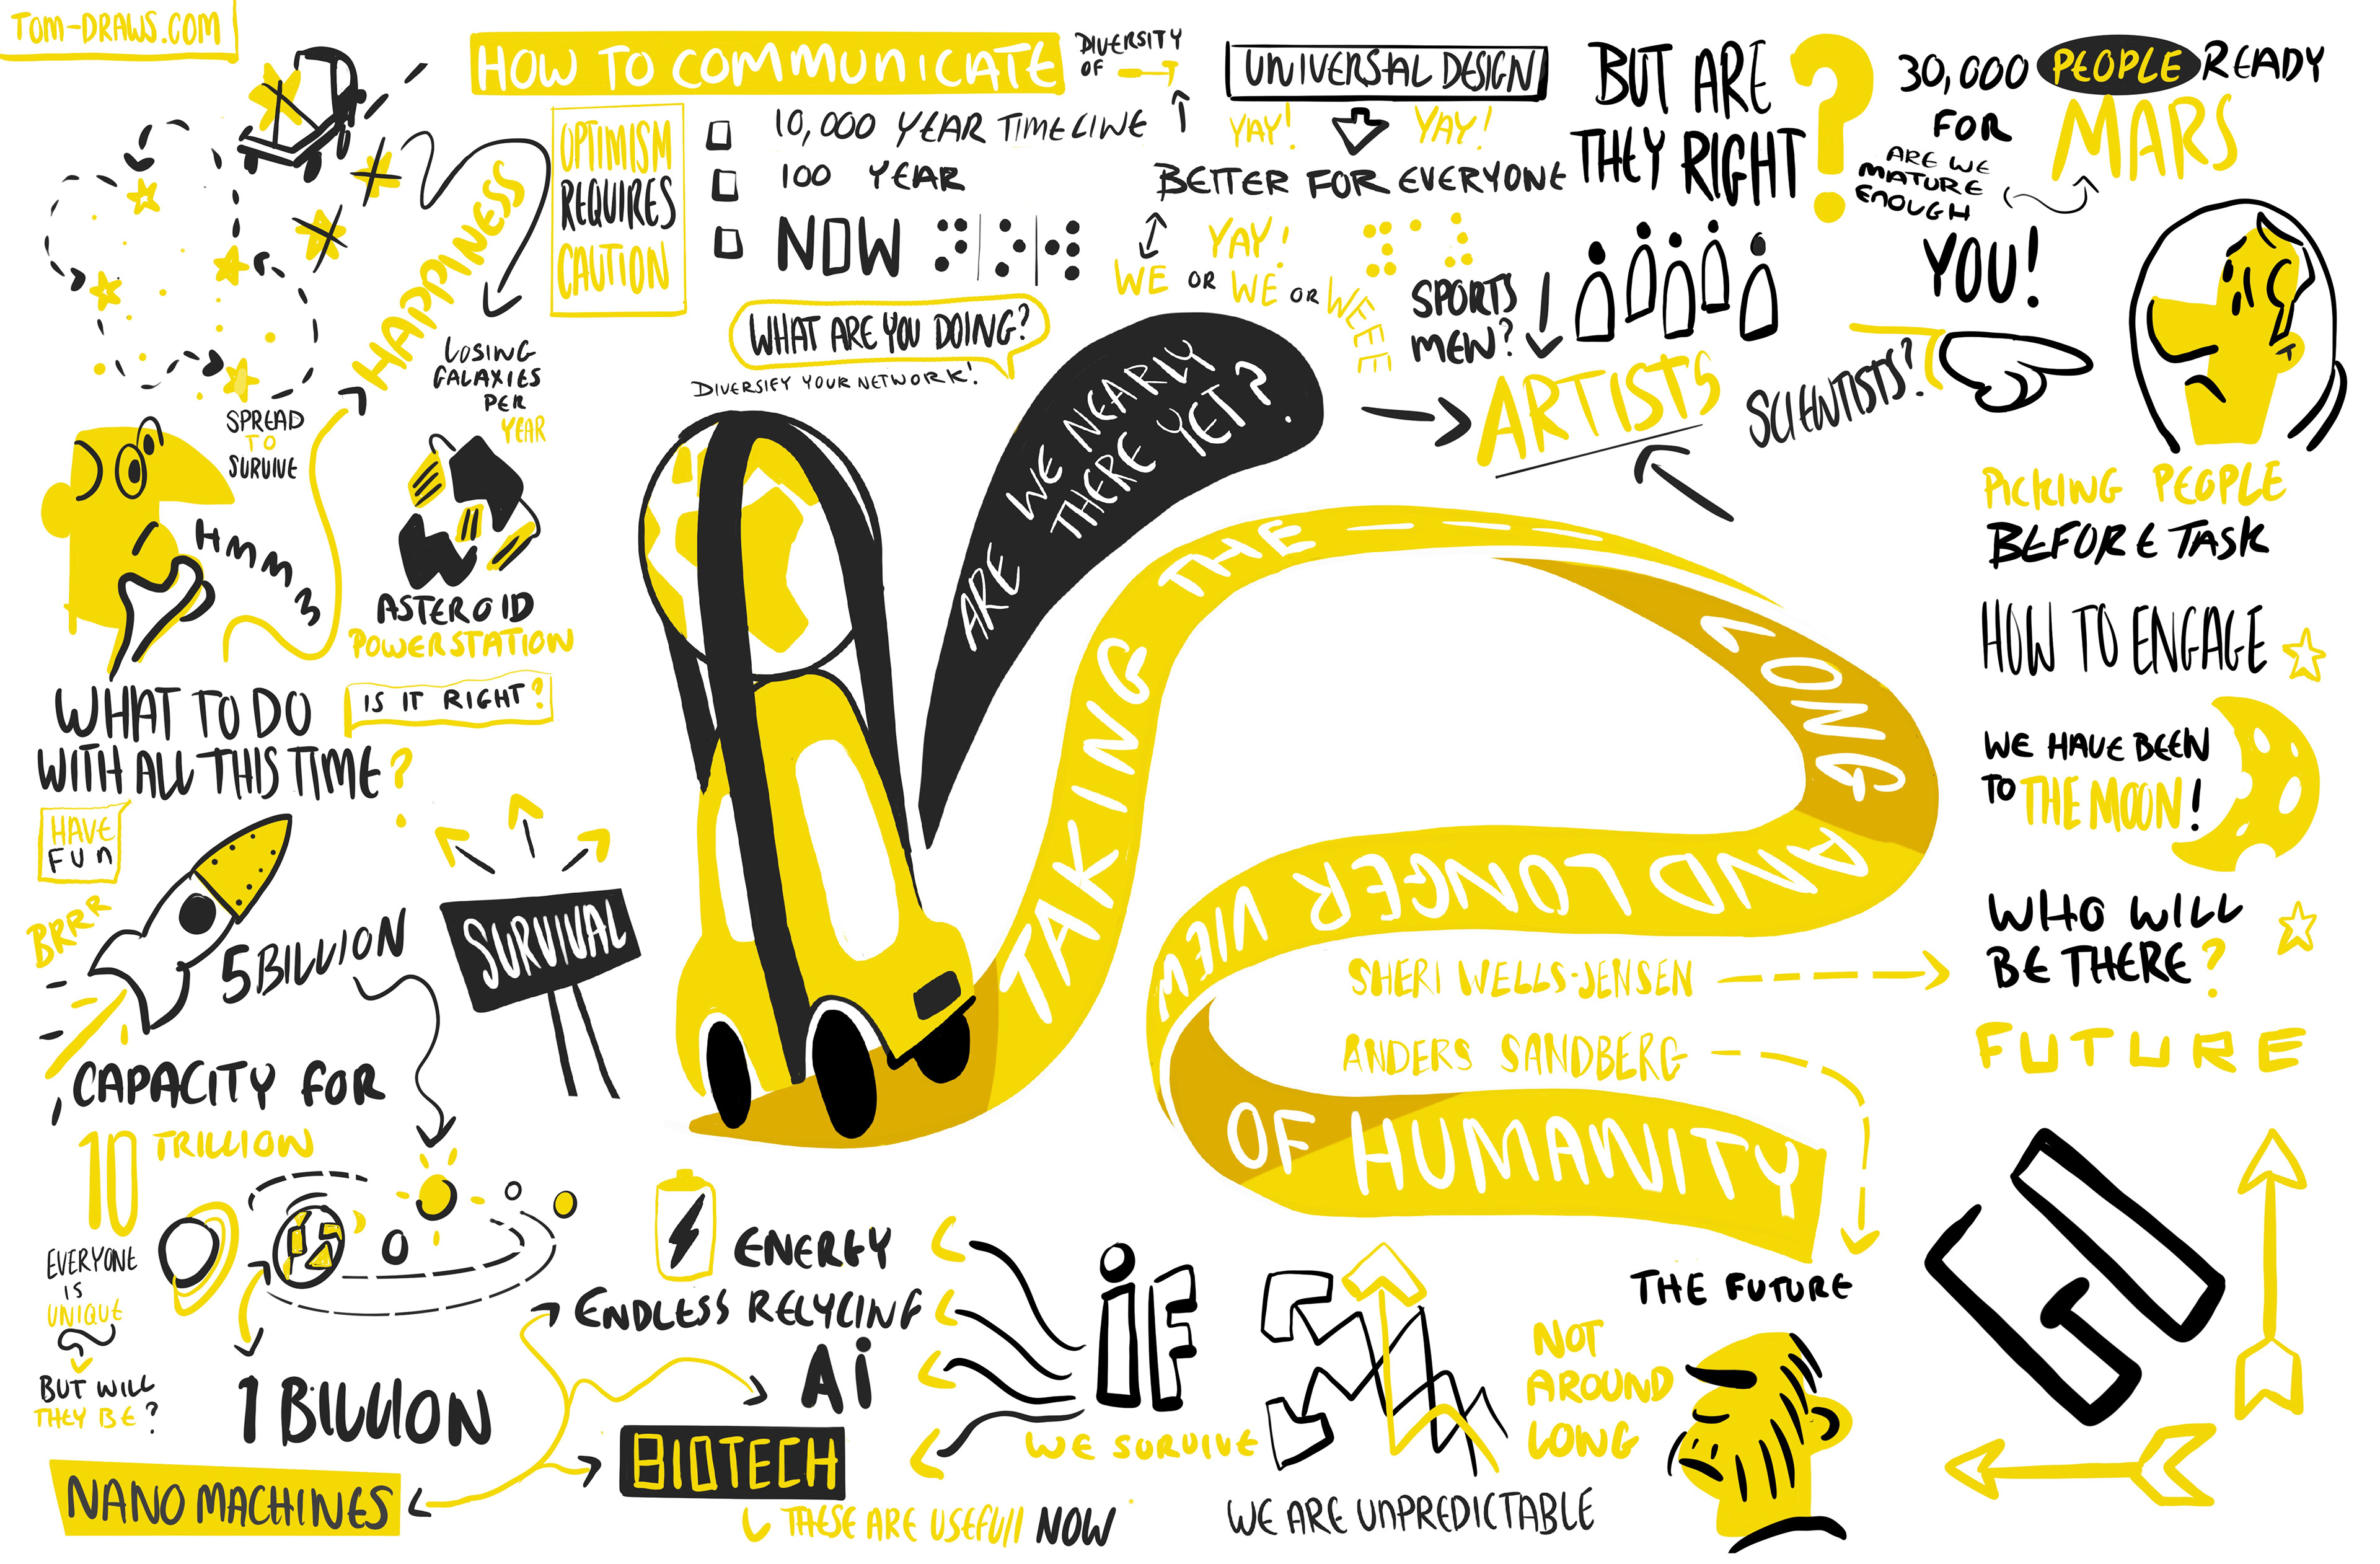 TOM-DRAWS.COM
HOW TO COMMUNICATE
DIVERSITY
OF
OPTIMISM
REQUIRES
CAUTION
10,000 YEAR TIMELINE
100 YEAR
NOW
WHAT ARE YOU DOING?
DIVERSIFY YOUR NETWORK!
UNIVERSAL DESIGN
YAY! YAY!
BETTER FOR EVERYONE
YAY!
WE OR WE OR WEEEE
BUT ARE
THEY RIGHT?
SPORTS
MEN?
ARTISTS
SCIENTISTS?
30,000 PEOPLE READY
FOR
MARS
ARE WE
MATURE
ENOUGH
YOU!
PICKING PEOPLE
BEFORE TASK
HOW TO ENGAGE
WE HAVE BEEN
TO THE MOON!
WHO WILL
BE THERE?
FUTURE
HAPPINESS
LOSING
GALAXIES
PER
YEAR
SPREAD
TO
SURVIVE
HMMM
ASTEROID
POWERSTATION
IS IT RIGHT?
WHAT TO DO
WITH ALL THIS TIME?
HAVE
FUN
BRRR
5 BILLION
SURVIVAL
CAPACITY FOR
10 TRILLION
EVERYONE
IS
UNIQUE
BUT WILL
THEY BE?
1 BILLION
NANO MACHINES
ARE WE NEARLY
THERE YET?
TAKING THE LONG
AND LONGER VIEW
OF HUMANITY
SHERI WELLS-JENSEN
ANDERS SANDBERG
ENERGY
ENDLESS RECYCING
AI
BIOTECH
THESE ARE USEFULL NOW
IF
WE SURVIVE
WE ARE UNPREDICTABLE
THE FUTURE
NOT
AROUND
LONG